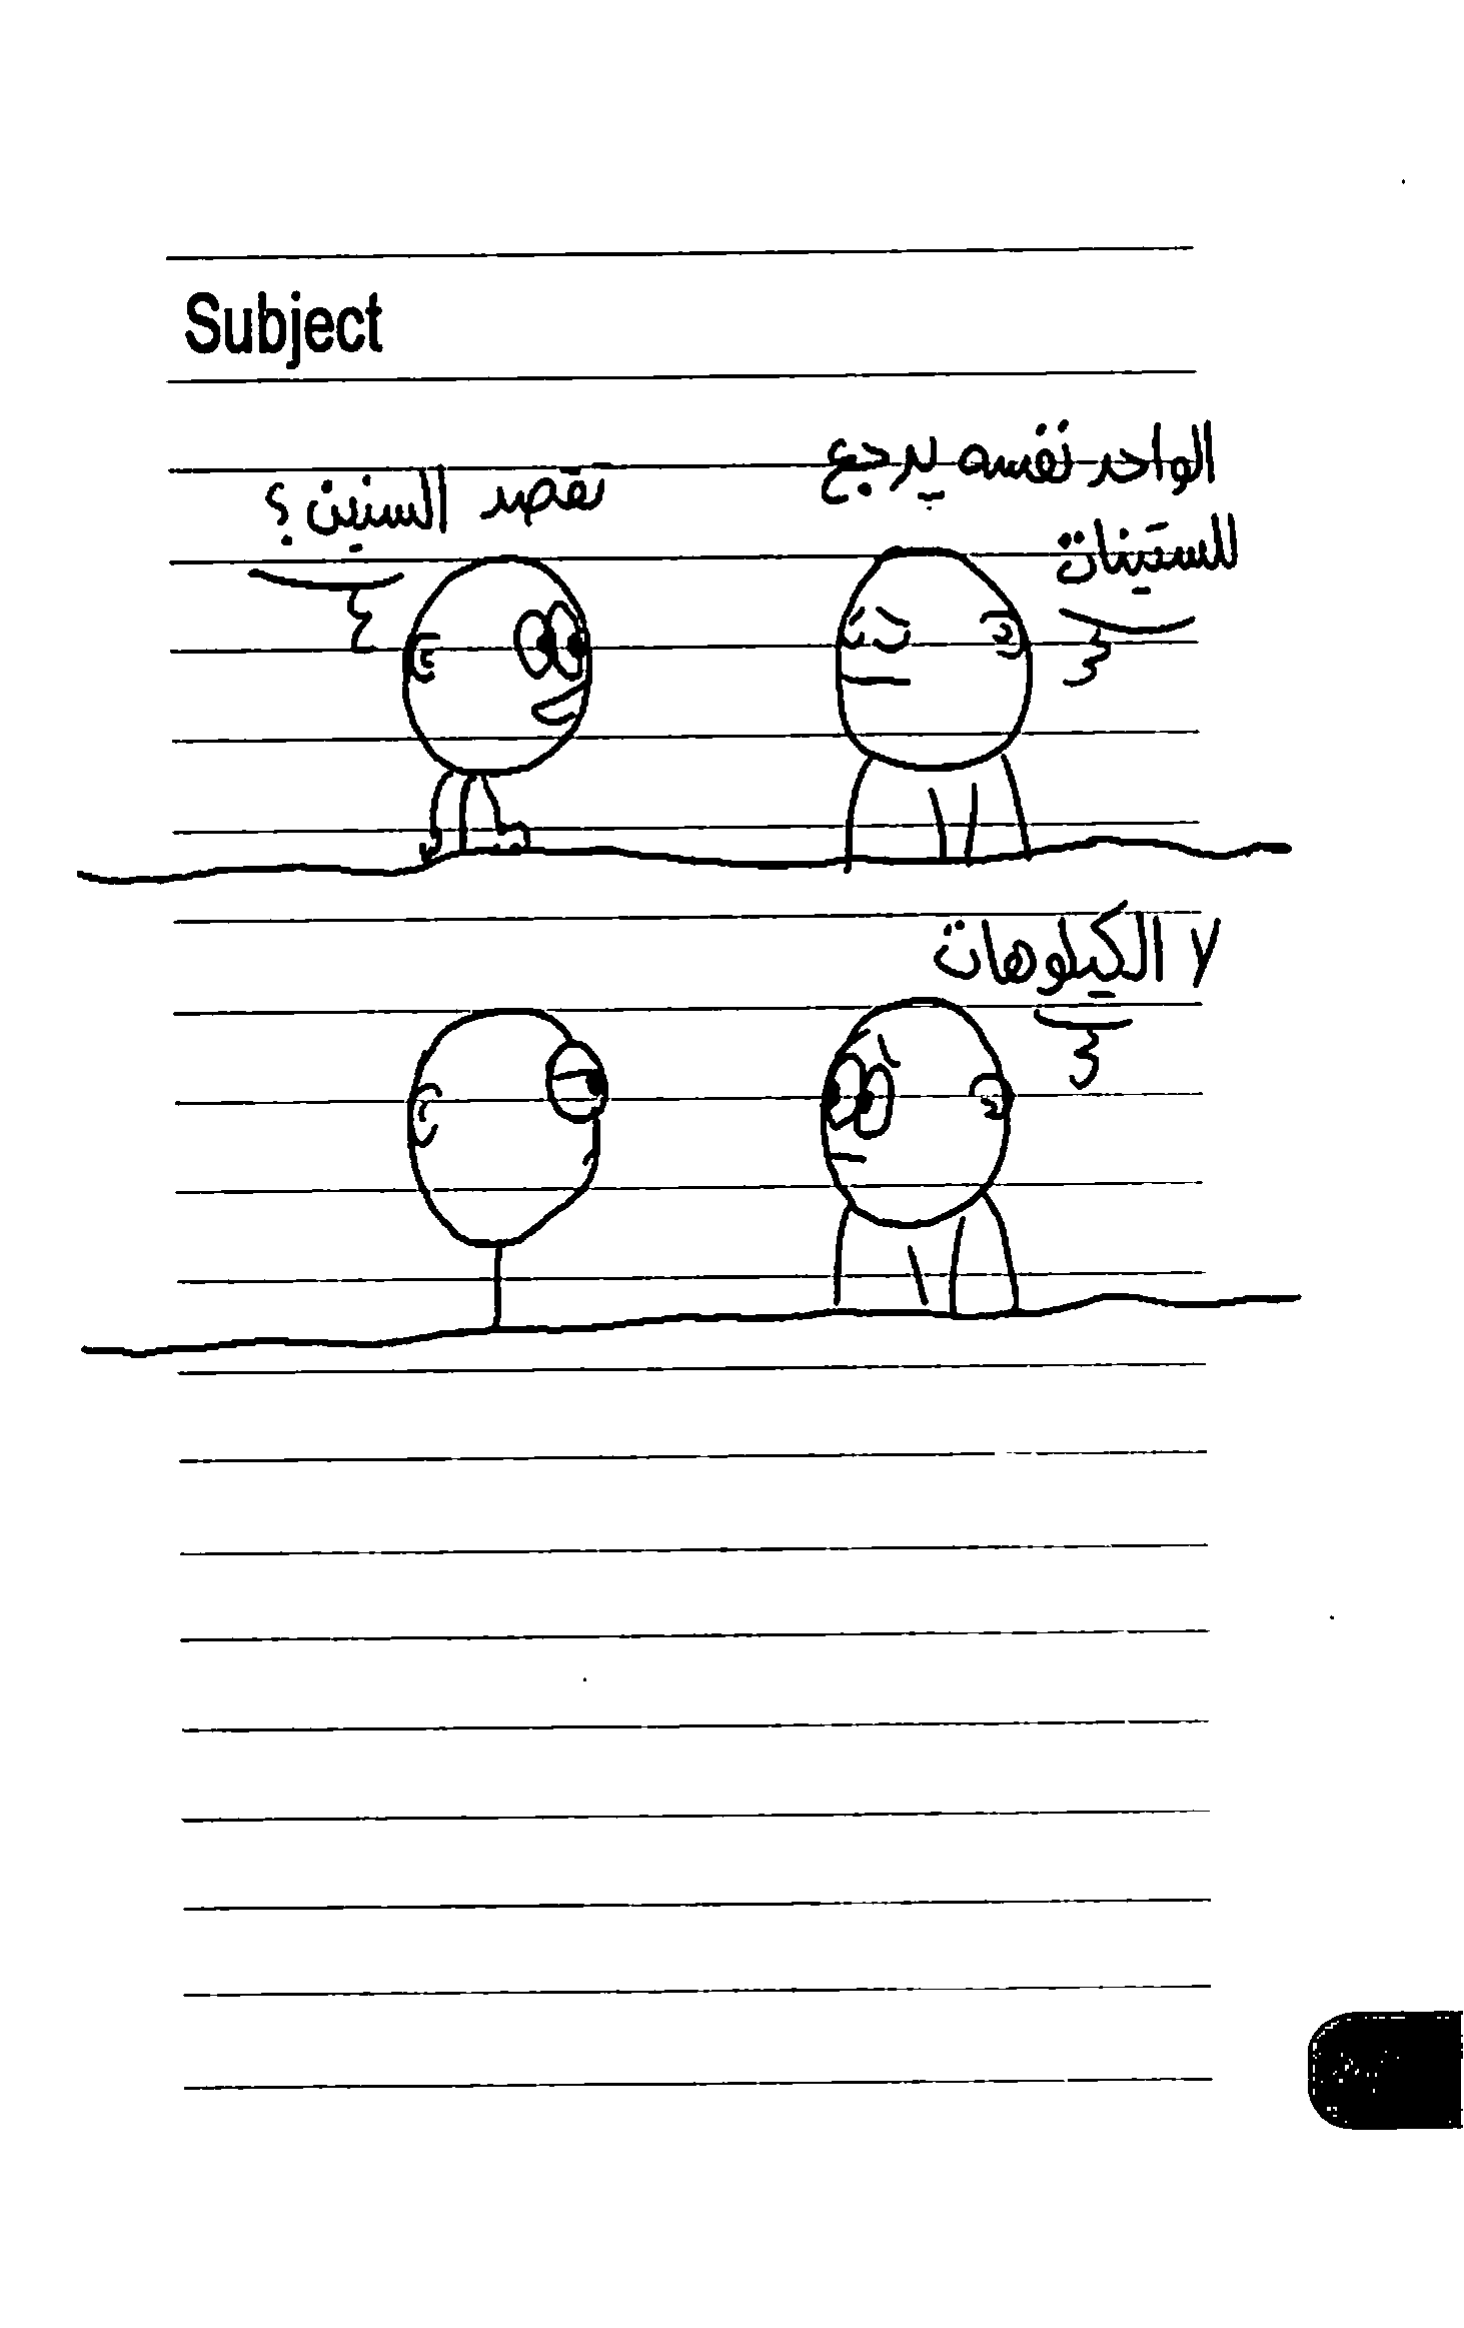 Subject
الواحد نفسه يرجع
للستينات
تقصد السنين؟
لا الكيلوهات